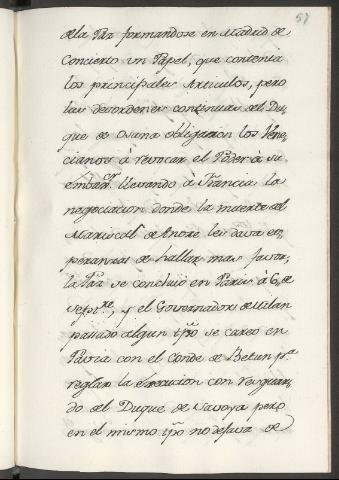 57
de la Paz formandose en Madrid de
Concierto un Papel, que contenia
los principales Articulos, pero
las desordenes continuas del Du-
que de Osuna obligaron los Vene-
cianos à revocar el Poder à su
embax.ʳ llevando à Francia la
negociacion donde la muerte del
Mariscal de Ancre les dava es-
peranzas de hallar mas favor,
la Paz se concluiò en Paris à 6, de
sept.ʳᵉ, y el Governador de Milan
passado algun tpõ se careo en
Pavia con el Conde de Betun p.ᵃ
reglar la execucion con resguar-
do del Duque de Savoya pero
en el mismo tpõ no dejava de